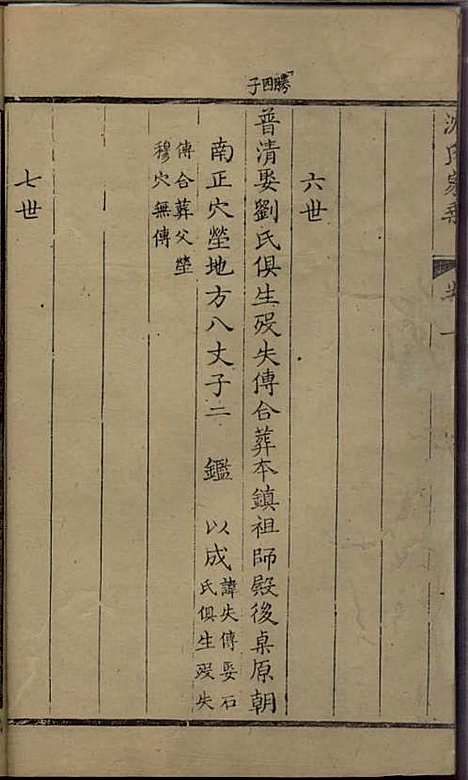 沈氏宗譜
卷一
六世
勝四子
普清娶劉氏俱生歿失傳合葬本鎮祖師殿後桌原朝
南正穴塋地方八丈子二　鑑　以成諱失傳娶石
氏俱生歿失
傳合葬父塋
穆穴無傳
七世